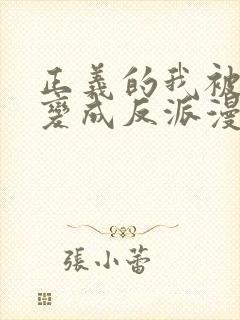 正義的我被
變成反派漫
張小蕾